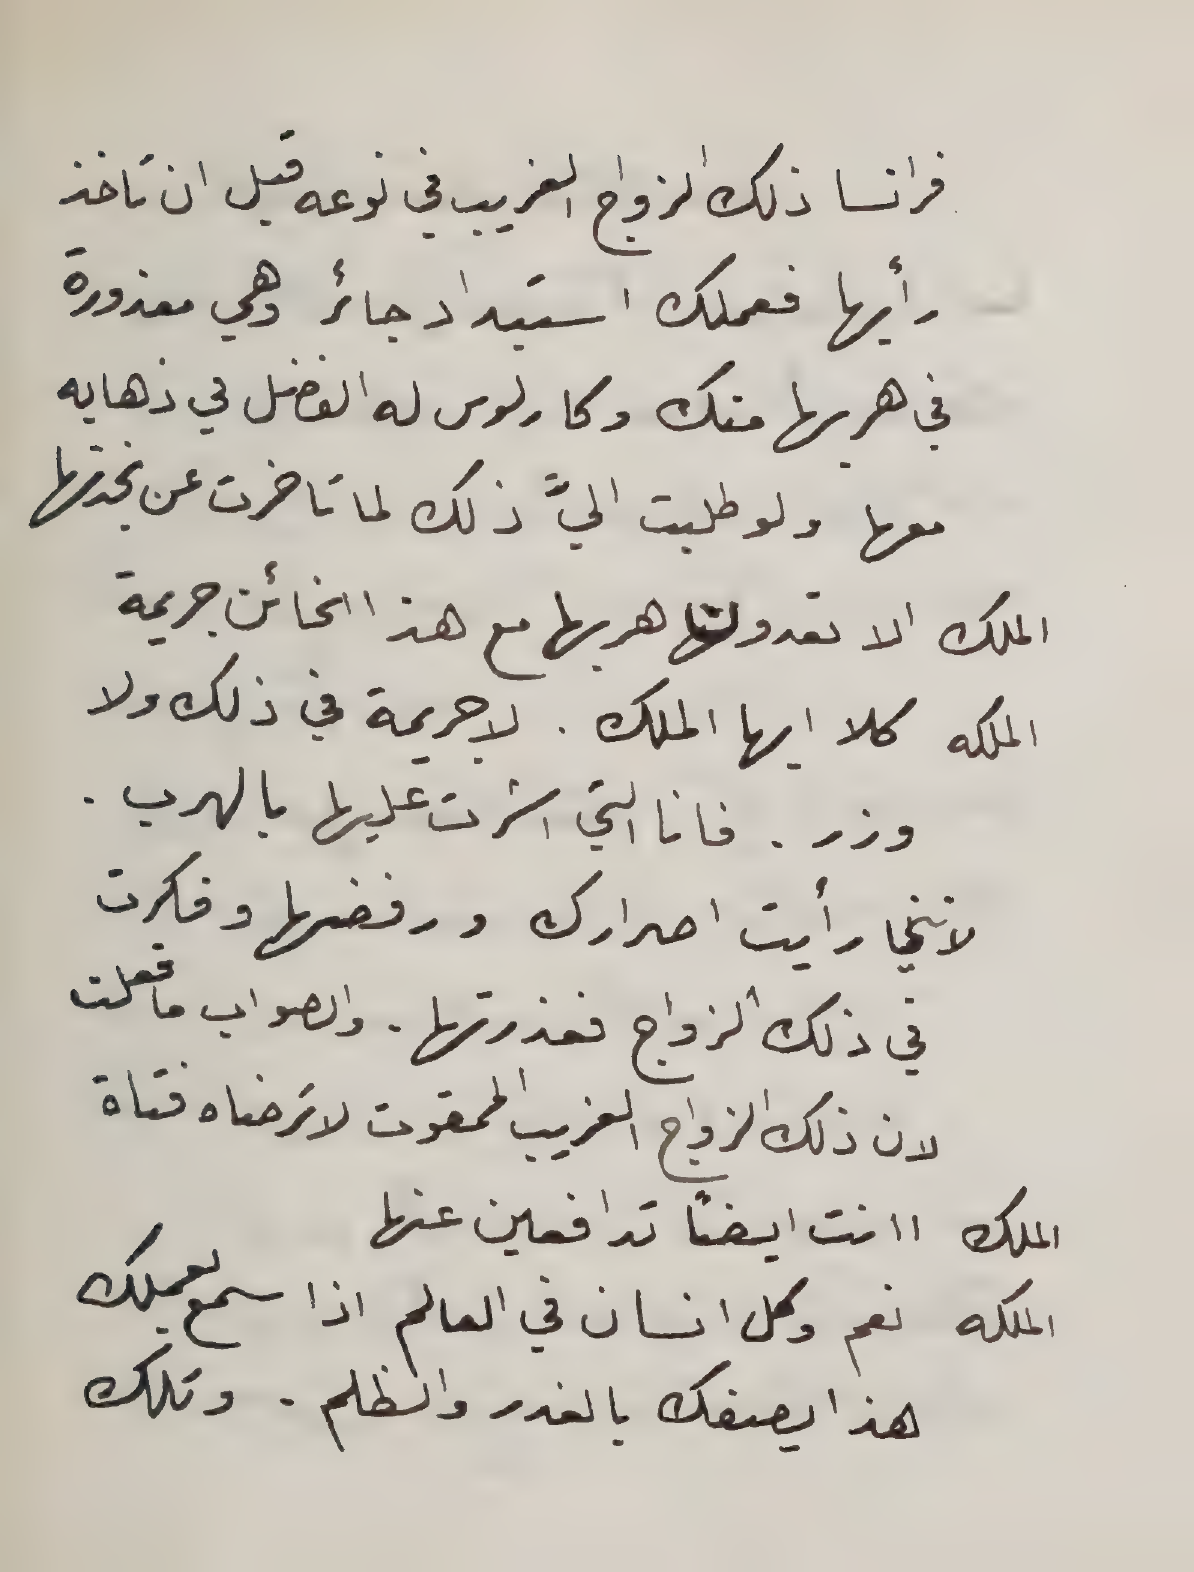 فرانسا ذلك الزواج الغريب في نوعه قبل ان تاخذ
رأيها فعملك استبداد جائر وهي معذورة
في هربها منك وكارلوس له الفضل في ذهابه
معها ولو طلبت اليَّ ذلك لما تاخرت عن نجدتها
الملك الا تعدون هربها مع هذا الخائن جريمة
الملكه كلا ايها الملك . لا جريمة في ذلك ولا
وزر . فانا التي اشرت عليها بالهرب .
لانني رأيت اصرارك ورفضها وفكرت
في ذلك الزواج فعذرتها . والصواب ما فعلت
لان ذلك الزواج الغريب الممقوت لا ترضاه فتاة
الملك اانت ايضًا تدافعين عنها
الملكه نعم وكل انسان في العالم اذا سمع بعملك
هذا يصفك بالغدر والظلم . وتلك